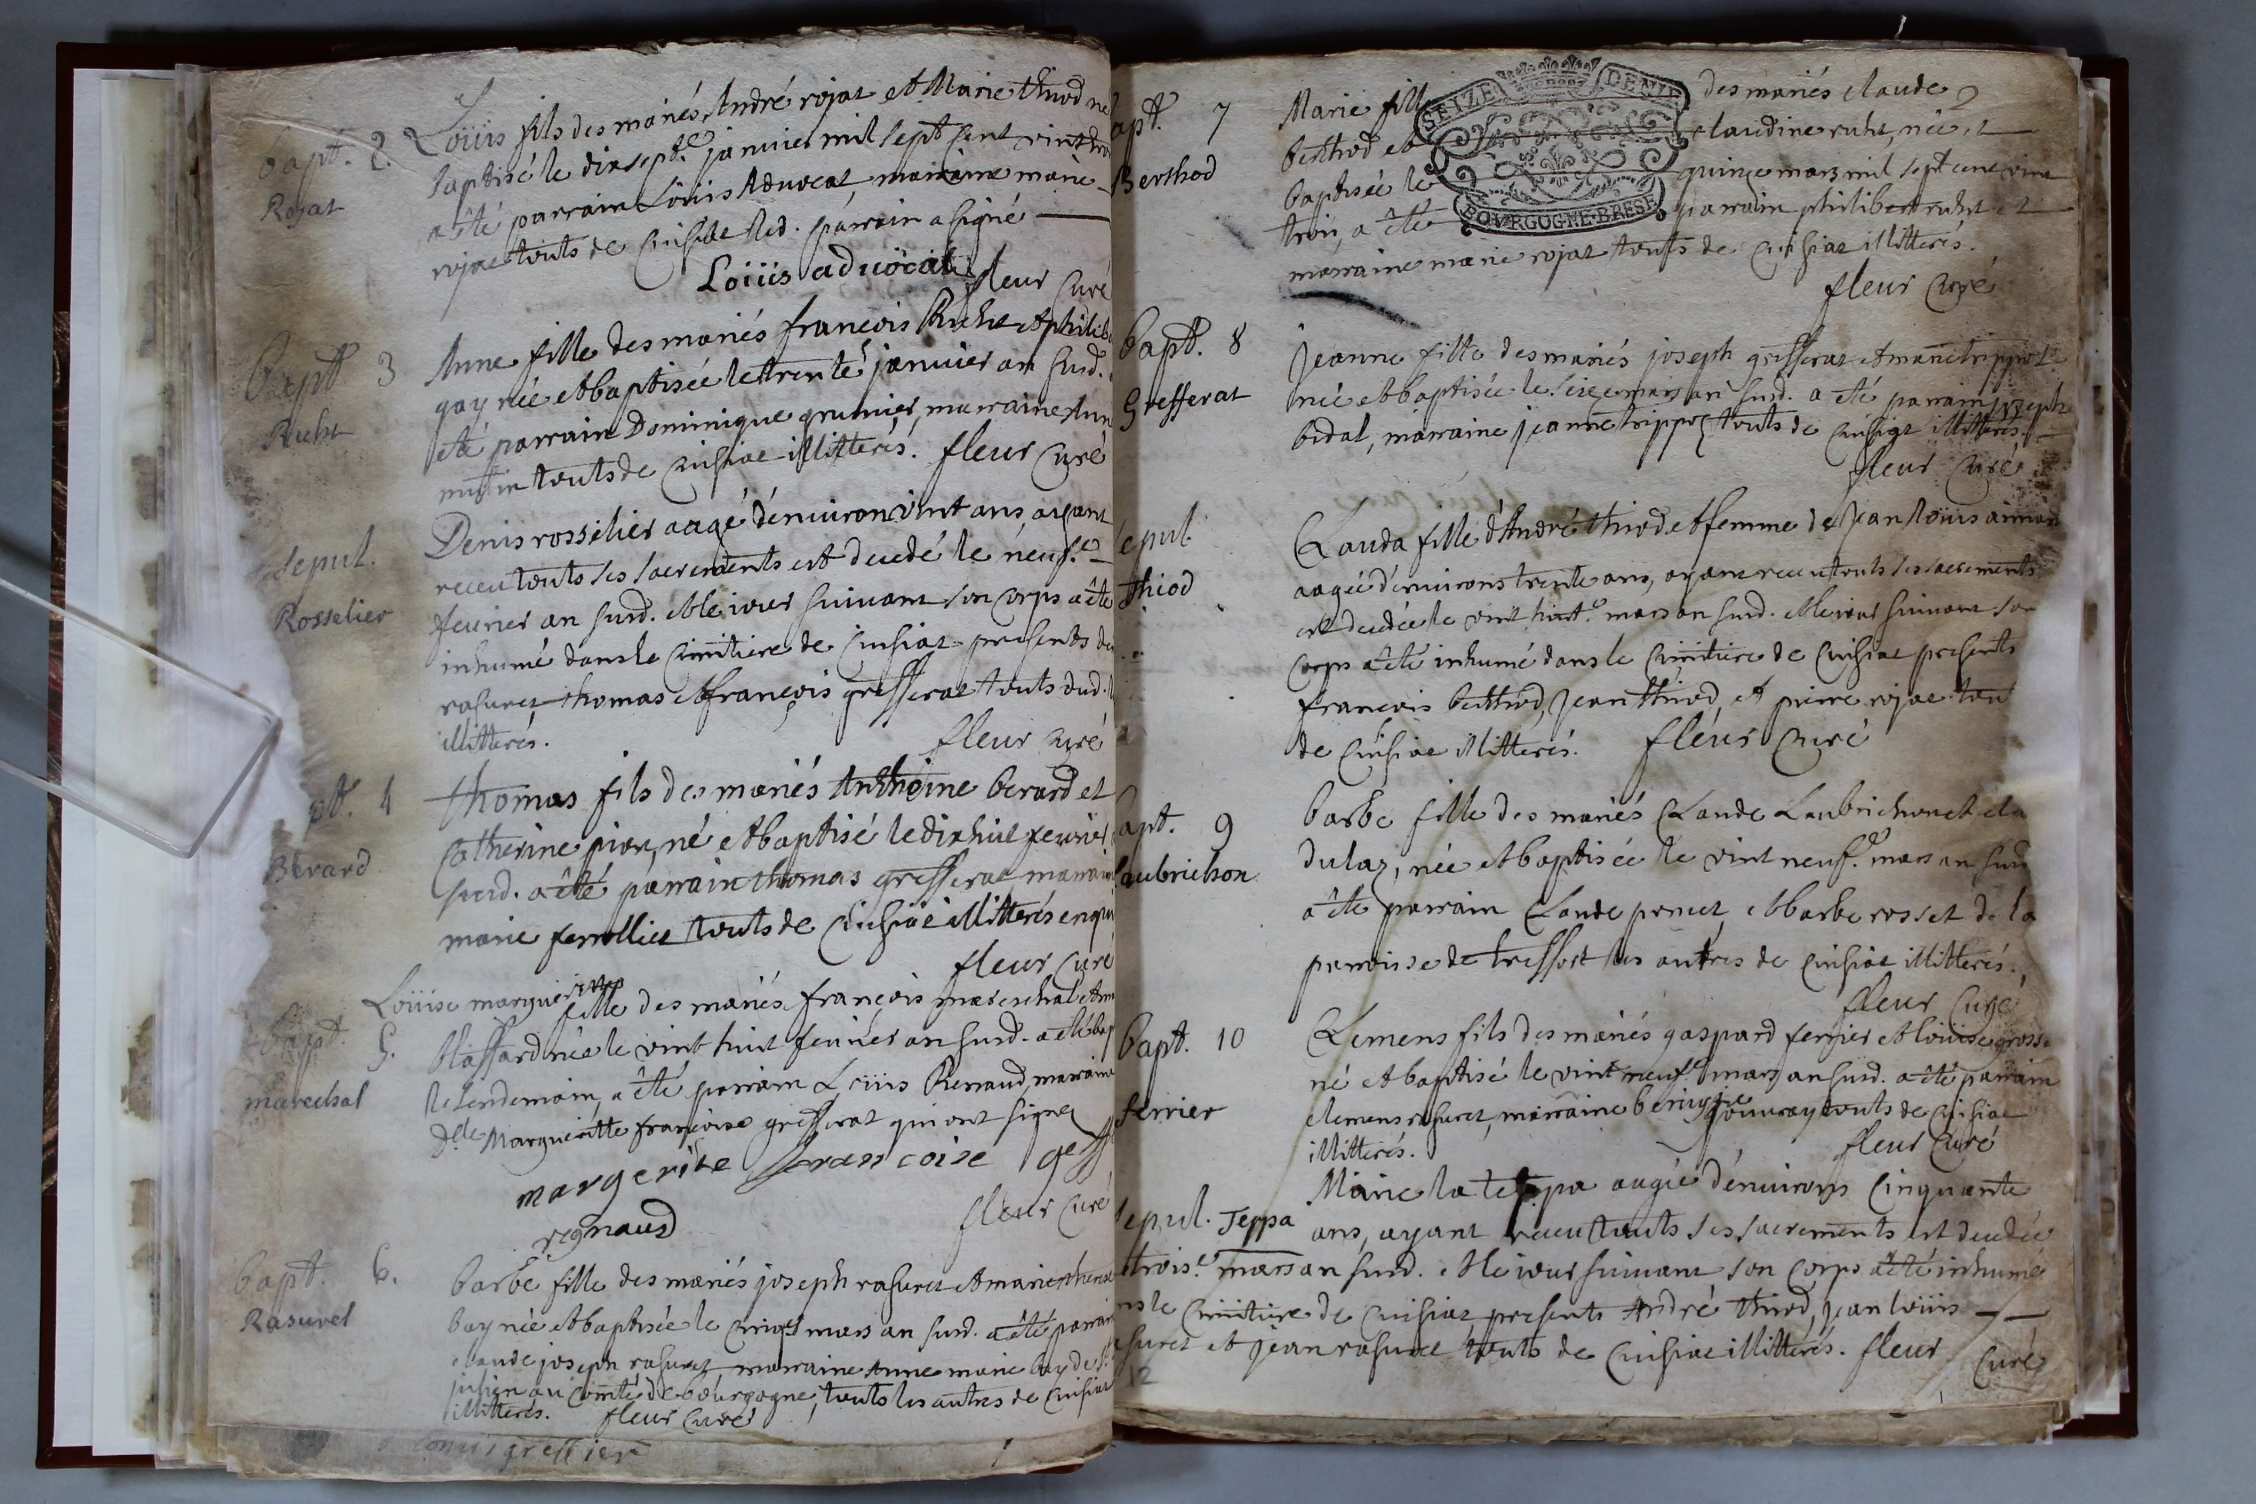 bapt. 2.
Rojat
Loüis fils des mariés André rojat et Marie thiod né
baptisé le dix sept.e janvier mil sept sent vint trois
a été parrain Loüis Advocat marraine marie
rojat touts de Cuisiat led. parrain a signé
Loiiis aduocat
fleur Curé
bapt 3
Ruht
Anne fille des mariés françois Ruht et philib
gay née et baptisée le trente janvier an susd.
été parrain Dominique grumier, marraine Ann
touts de Cuisiat illitterés. fleur Curé
sepul.
Rosselier
Denis rosselier aagé d'environ vint ans, ayant
receu touts ses sacrements est decedé le neuf.e
fevrier an susd. et le iour suivant son corps a été
inhumé dans le Cimitiere de Cuisiat presents
rasurel thomas et françois grefferat touts dud.
illitterés.
fleur curé
pt. 4
Berard
thomas fils des mariés Anthoine berard et
Catherine pion, né et baptisé le dix huit fevrier
susd. a été parrain thomas grefferat marrain
marie perrollier touts de Cuisiat illitterés enquis
fleur Curé
bapt. 5.
marechal
Loüise marguerite
fille des mariés françois mareschal et Ann
blaffard née le vint huit fevrier an susd. a été bap
le lendemain, a été parrain Loüis Renaud, marraine
d.lle Margueritte françoise grefferat qui ont signé
margerite francoise greff
regnaud
fleur Curé
bapt. 6.
Rasurel
barbe fille des mariés joseph rasurel et marie
bay née et baptisée le cinq mars an susd. a été parrain
claude joseph rasurel marraine Anne marie bay de St
julien au Comté de bourgogne, touts les autres de Cuisiat
illitterés. fleur Curé
apt. 7
Berthod
SEIZE DENIE
BOVRGOGNE BRESE
Marie fille des mariés claude
berthod et claudine ruht, née et
baptisée le quinze mars mil sept cent vint
trois, a été parrain philibert ruht et
marraine marie rojat touts de Cuisiat illitterés.
fleur Curé
bapt. 8
Grefferat
jeanne fille des mariés joseph grefferat et marie trippoz
née et baptisée le seize mars an susd. a été parrain joseph
bidal, marraine jeanne trippoz touts de Cuisiat illitterés.
fleur Curé
sepul.
Thiod
Clauda fille d'André thiod et femme de jean loüis
aagée d'environs trente ans, ayant receu touts ses sacrements
est decedée le vint huit.e mars an susd. et le iour suivant son
corps a été inhumé dans le Cimitiere de Cuisiat presents
francois berthod, jean thiod, et pierre rojat tou
de Cuisiat illitterés. fleur Curé
apt. 9
aubrichon
barbe fille des mariés Claude Laubrichon et
dulaz, née et baptisée le vint neuf.e mars an susd
a été parrain Claude poncet, et barbe rosset de la
parroisse de treffort les autres de Cuisiat illitterés.
fleur Curé
bapt. 10
ferrier
Clemens fils des mariés gaspard ferrier et loüise
né et baptisé le vint neuf.e mars an susd. a été parrain
clemens rasurel, marraine touts de Cuisiat
illitterés.
fleur Curé
sepul. Teppa
Marie la teppa aagée d'environs Cinquante
ans, ayant receu touts ses sacrements est decedée
trois.e mars an susd. et le iour suivant son corps a été inhumé
ns le Cimitiere de Cuisiat presents André thiod, jean loüis
asurel et jean rasurel touts de Cuisiat illitterés. fleur Curé